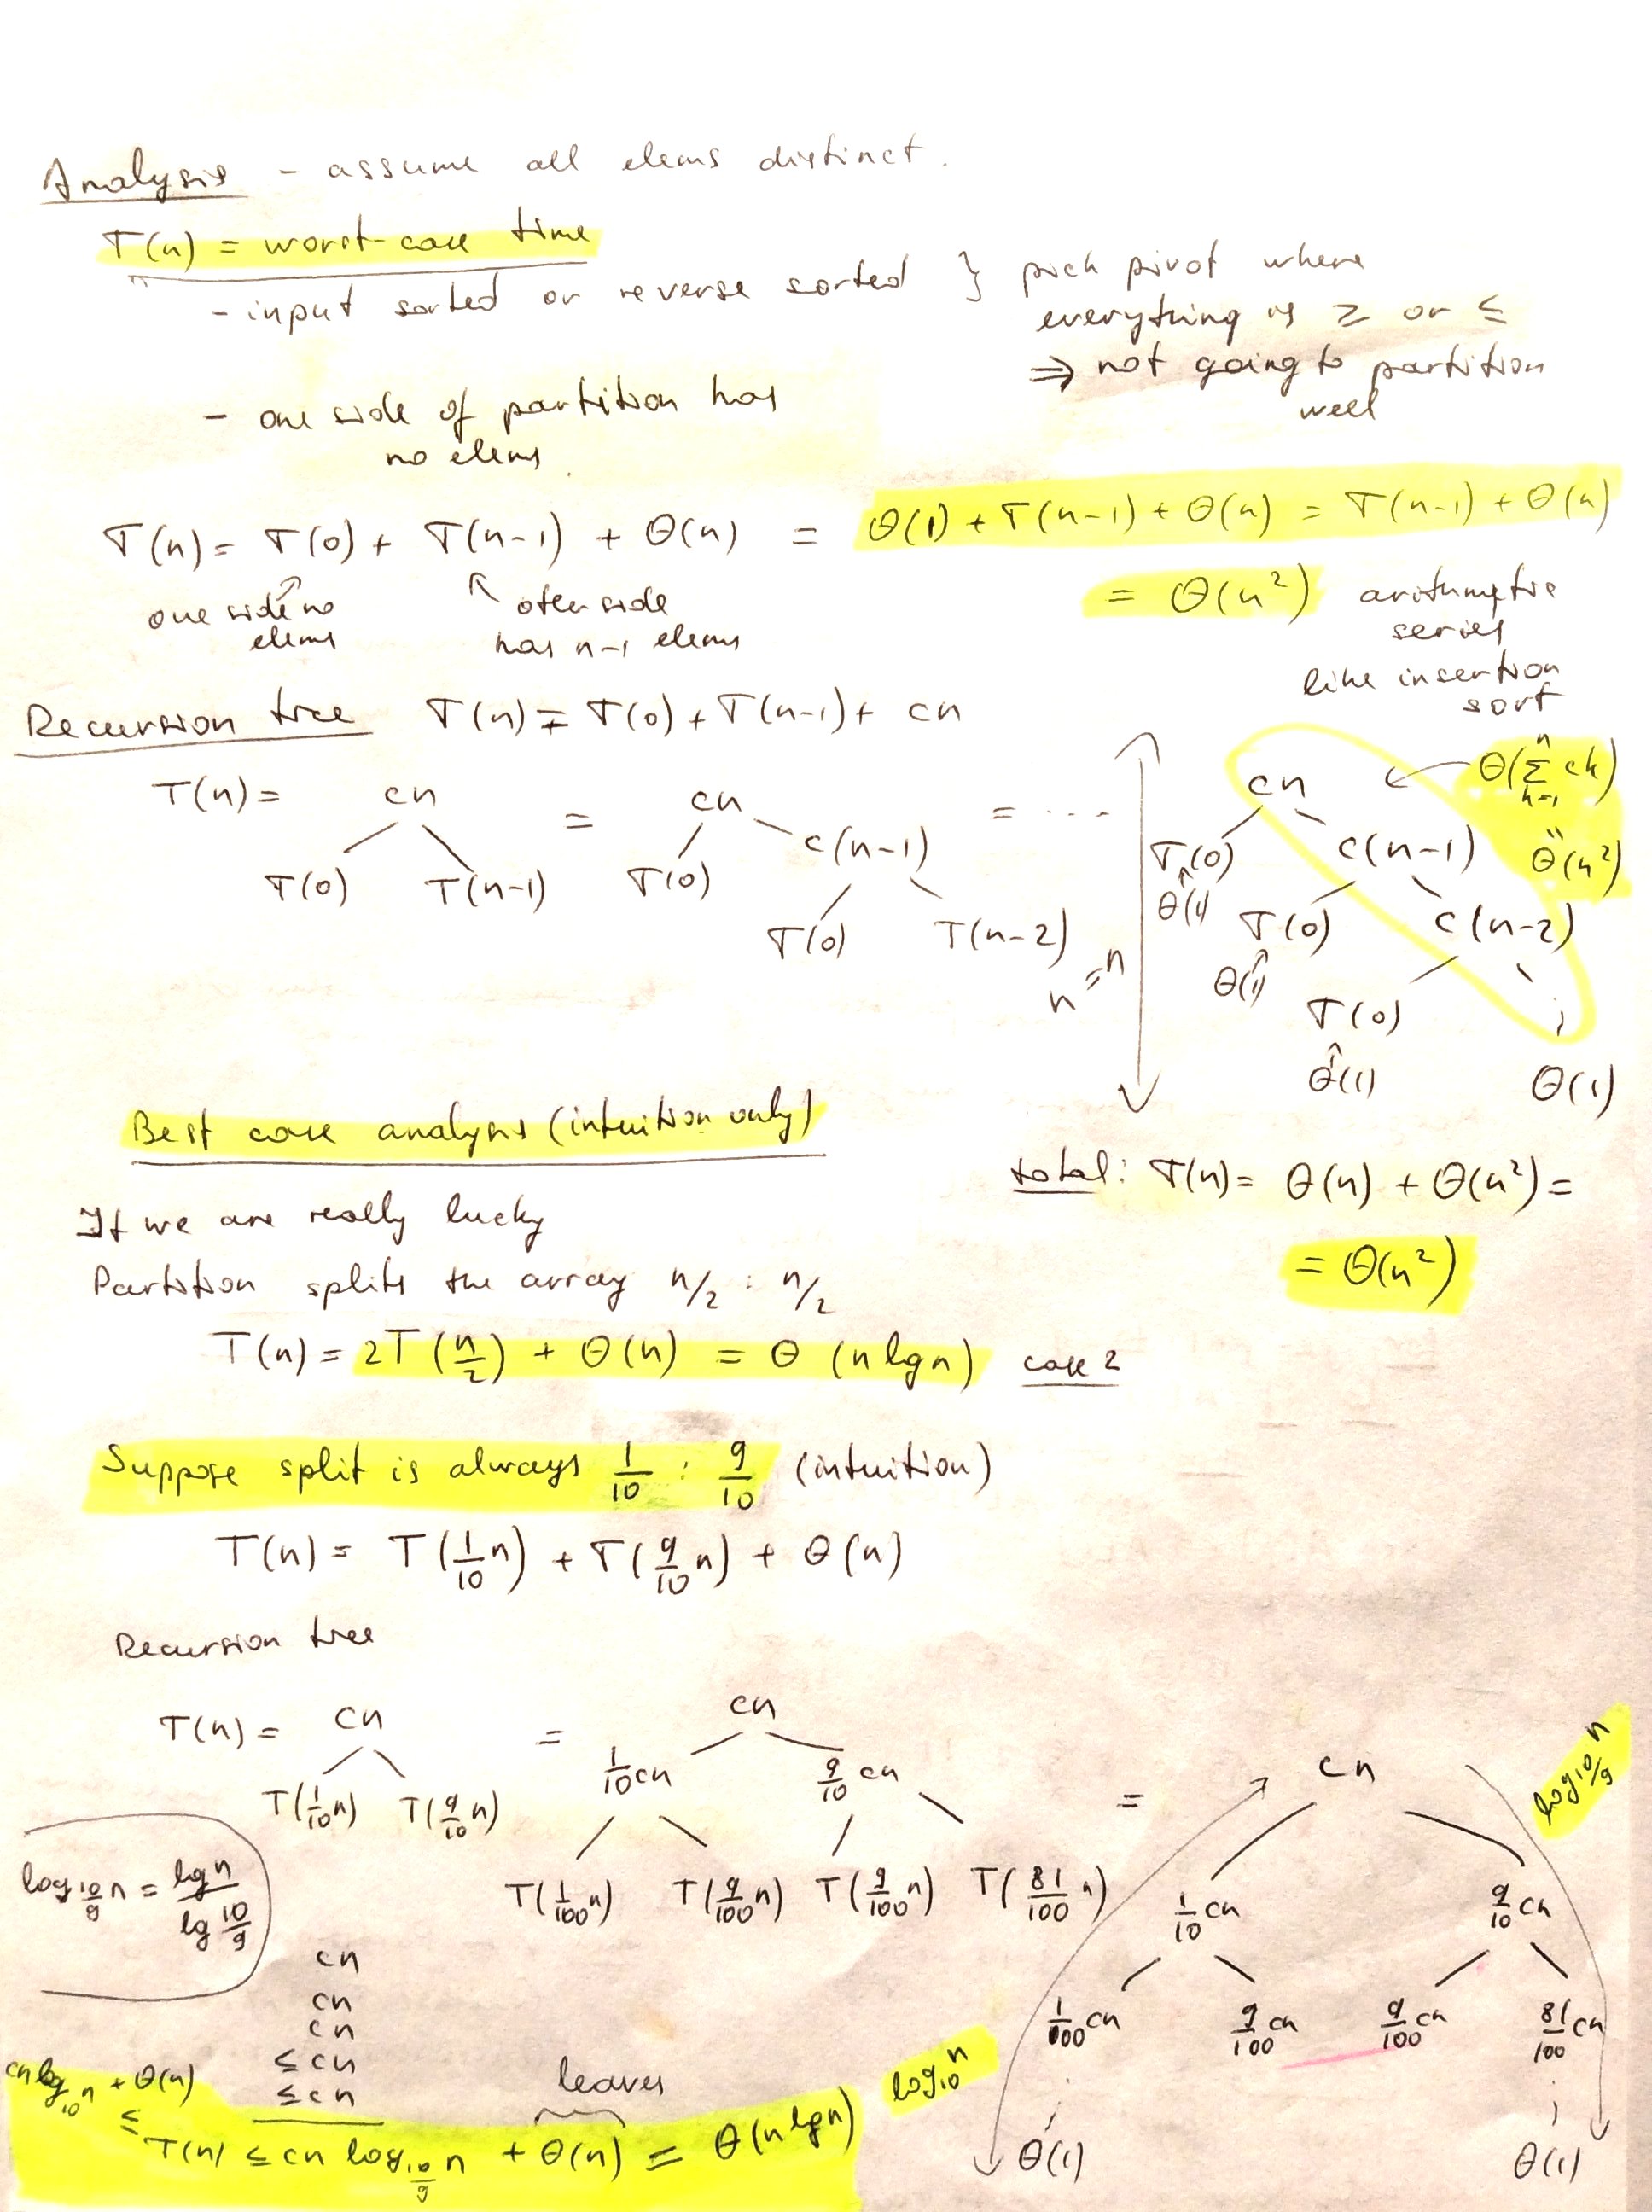 Analysis - assume all elems distinct.
T(n) = worst-case time
- input sorted or reverse sorted } pick pivot where
everything is ≥ or ≤
⇒ not going to partition
well
- one side of partition has
no elems.
T(n) = T(0) + T(n-1) + Θ(n) = Θ(1) + T(n-1) + Θ(n) = T(n-1) + Θ(n)
= Θ(n²) arithmetic
series
like insertion
sort
one side no
elems
other side
has n-1 elems
Recursion tree T(n) = T(0) + T(n-1) + cn
T(n) = cn = cn = ....
T(0) T(n-1)
T(0) c(n-1)
T(0) T(n-2)
n = n
cn Θ(∑ₖ₌₁ⁿ ck)
T(0) c(n-1) Θ(n²)
Θ(1) T(0) c(n-2)
Θ(1) T(0)
Θ(1) Θ(1)
total: T(n) = Θ(n) + Θ(n²) =
= Θ(n²)
Best case analysis (intuition only)
If we are really lucky
Partition splits the array n/2 : n/2
T(n) = 2T(n/2) + Θ(n) = Θ(n lg n) case 2
Suppose split is always 1/10 : 9/10 (intuition)
T(n) = T(1/10 n) + T(9/10 n) + Θ(n)
Recursion tree
T(n) = cn = cn = cn
T(1/10 n) T(9/10 n)
1/10 cn 9/10 cn
T(1/100 n) T(9/100 n) T(9/100 n) T(81/100 n)
log10/9 n
1/10 cn 9/10 cn
1/100 cn 9/100 cn 9/100 cn 81/100 cn
log10 n
Θ(1) Θ(1)
log10/9 n = lg n / lg 10/9
cn
cn
cn
≤ cn
≤ cn
leaves
cn log10 n + Θ(n) ≤
T(n) ≤ cn log10/9 n + Θ(n) = Θ(n lg n)